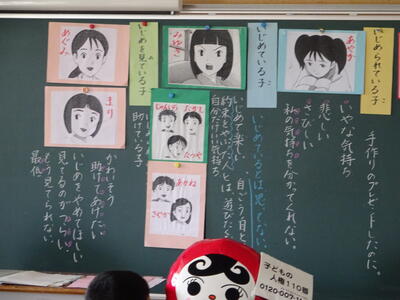 いじめられている子
あやか
手作りのプレゼントしたのに。
いやな気持ち
悲しい
ひどい
私の気持ちを分かってくれない。
いじめている子
みゆき
いじめているとは思ってない。
自ごう自とく
約束をやぶった人とは、遊びたくない
自分だけいい気持ち
いじめて楽しい
じゅんのすけ
たかし
たつや
あかね
さやか
いじめを見ている子
めぐみ
まり
助けている子
かわいそう
助けてあげたい
いじめをやめてほしい
見てるのがつらい
もう見てられない。
最低
子どもの
人権110番
0120-007-1